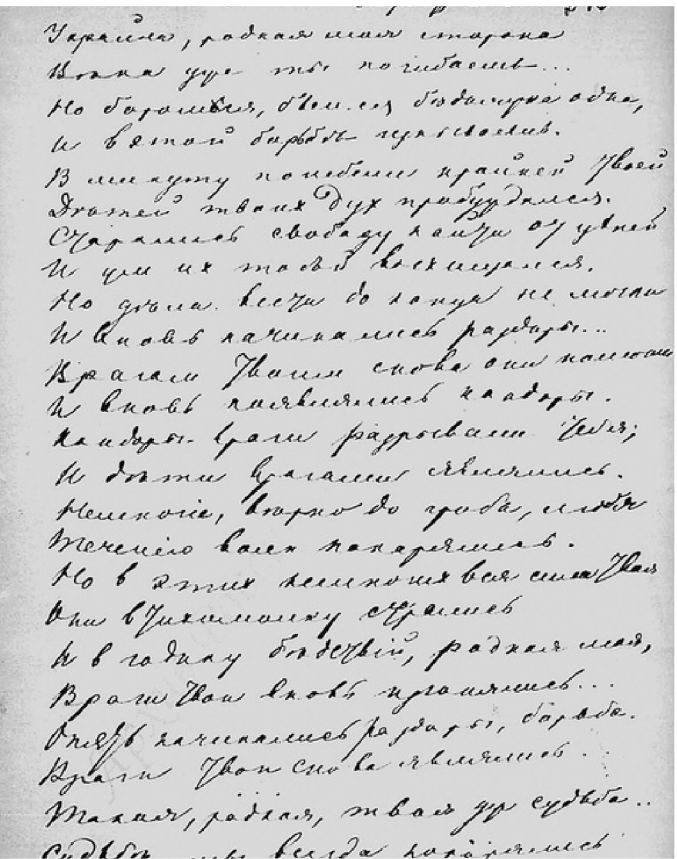 Украйна, родная моя сторона
Вѣка уже ты погибаешь...
Но борешься, бьешься бѣдняжка одна,
И в этой борьбѣ
В минуту погибели крайней Твоей
Дѣтей твоих дух пробуждался.
Старались свободу найти от цѣпей
И ум их тобой восхищался.
Но дѣла вести до конца не могли
И вновь начинались раздоры...
Врагам Твоим снова они помогли
И вновь появлялись кандоры.
Кандоры. Враги разрывали Тебя;
И дѣти врагами являлись.
Немногіе, вѣрно до гроба, любя
Теченію волн покорялись.
Но в этих немногих вся сила Твоя
Они втихомолку старались
И в годину бѣдствій, родная моя,
Враги Твои вновь прогонялись...
Опять начинались раздоры, борьба.
Враги Твои снова являлись...
Такая, родная, твоя уж судьба..
всегда покорялись